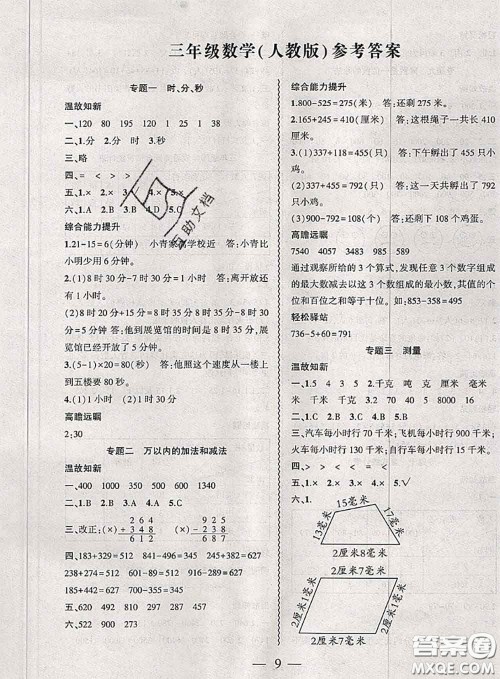 三年级数学(人教版)参考答案
专题一 时、分、秒
温故知新
一、120 80 195 120 1 25 1 38
二、1.分 2.分 时 3.秒
三、略
四、= < > < >
五、1.× 2.× 3. 4.× 5.×
六、1. 2.B 3. 4.D 5.C
综合能力提升
1.21-15=6(分钟) 小青家 学校近 答:小青比
小明少用6分钟。
2.(1)8时30分-7时30分=1小时 答:离开放还
有1小时。
(2)8时20分+15分=8时35分 8时35分-8时
30分=5分 答:他到展览馆的时间与展览
馆已经开放了5分钟。
3.(5-1)×20=80(秒) 答:照这个速度从一楼上
到五楼要80秒。
4.(1)1小时 (2)3时30分
高瞻远瞩
2:30
专题二 万以内的加法和减法
温故知新
一、400 1000 350 500 600 1340
二、1.B 2.B 3.A 4.C 5.C
三、改正:(×) 264 (×) 935
+348 -248
612 687
四、183+329=512 751-560=191 365+262=627
627-262=365 274+568=842 842-568=274
274+551=825 825-274=551 365+262=627
五、620 492 810 297
六、812-627=185 922-537=385
综合能力提升
1.800-525=275(米) 答:还剩275米。
2.165+245=410(厘米) 答:这根绳子一共长410
厘米。
3.(1)337+118=455(只) 答:下午孵出了455只
小鸡。
(2)337+455=792(只) 答:这一天共孵出了792
只小鸡。
(3)900-792=108(个) 答:还剩下108个鸡蛋。
高瞻远瞩
4060 7547 3483 985 589
通过观察所给的3个算式,发现任意3个数字组成
的最大数减去以这3个数组成的最小数,其值的个
位和百位之和等于十位数。如:853-358=495
轻松驿站
736-5+60=791
专题三 测量
温故知新
一、1.5 4 3 5 2.千克 吨 克 厘米 毫
米 千米 千米 米 米
二、1.B 2.A 3.C 4.C 5.A
三、汽车每小时行70千米;飞机每小时行900千米;
轮船每小时行30千米;自行车每小时行15千米。
四、> = < < < >
五、1.× 2.× 3.× 4.× 5.√
六、1.
15毫米
17毫米
13毫米
2厘米8毫米
2厘米7毫米
2厘米1毫米
2厘米1毫米
2厘米7毫米
互助文档
答案圈
MXQE.COM
— 9 —